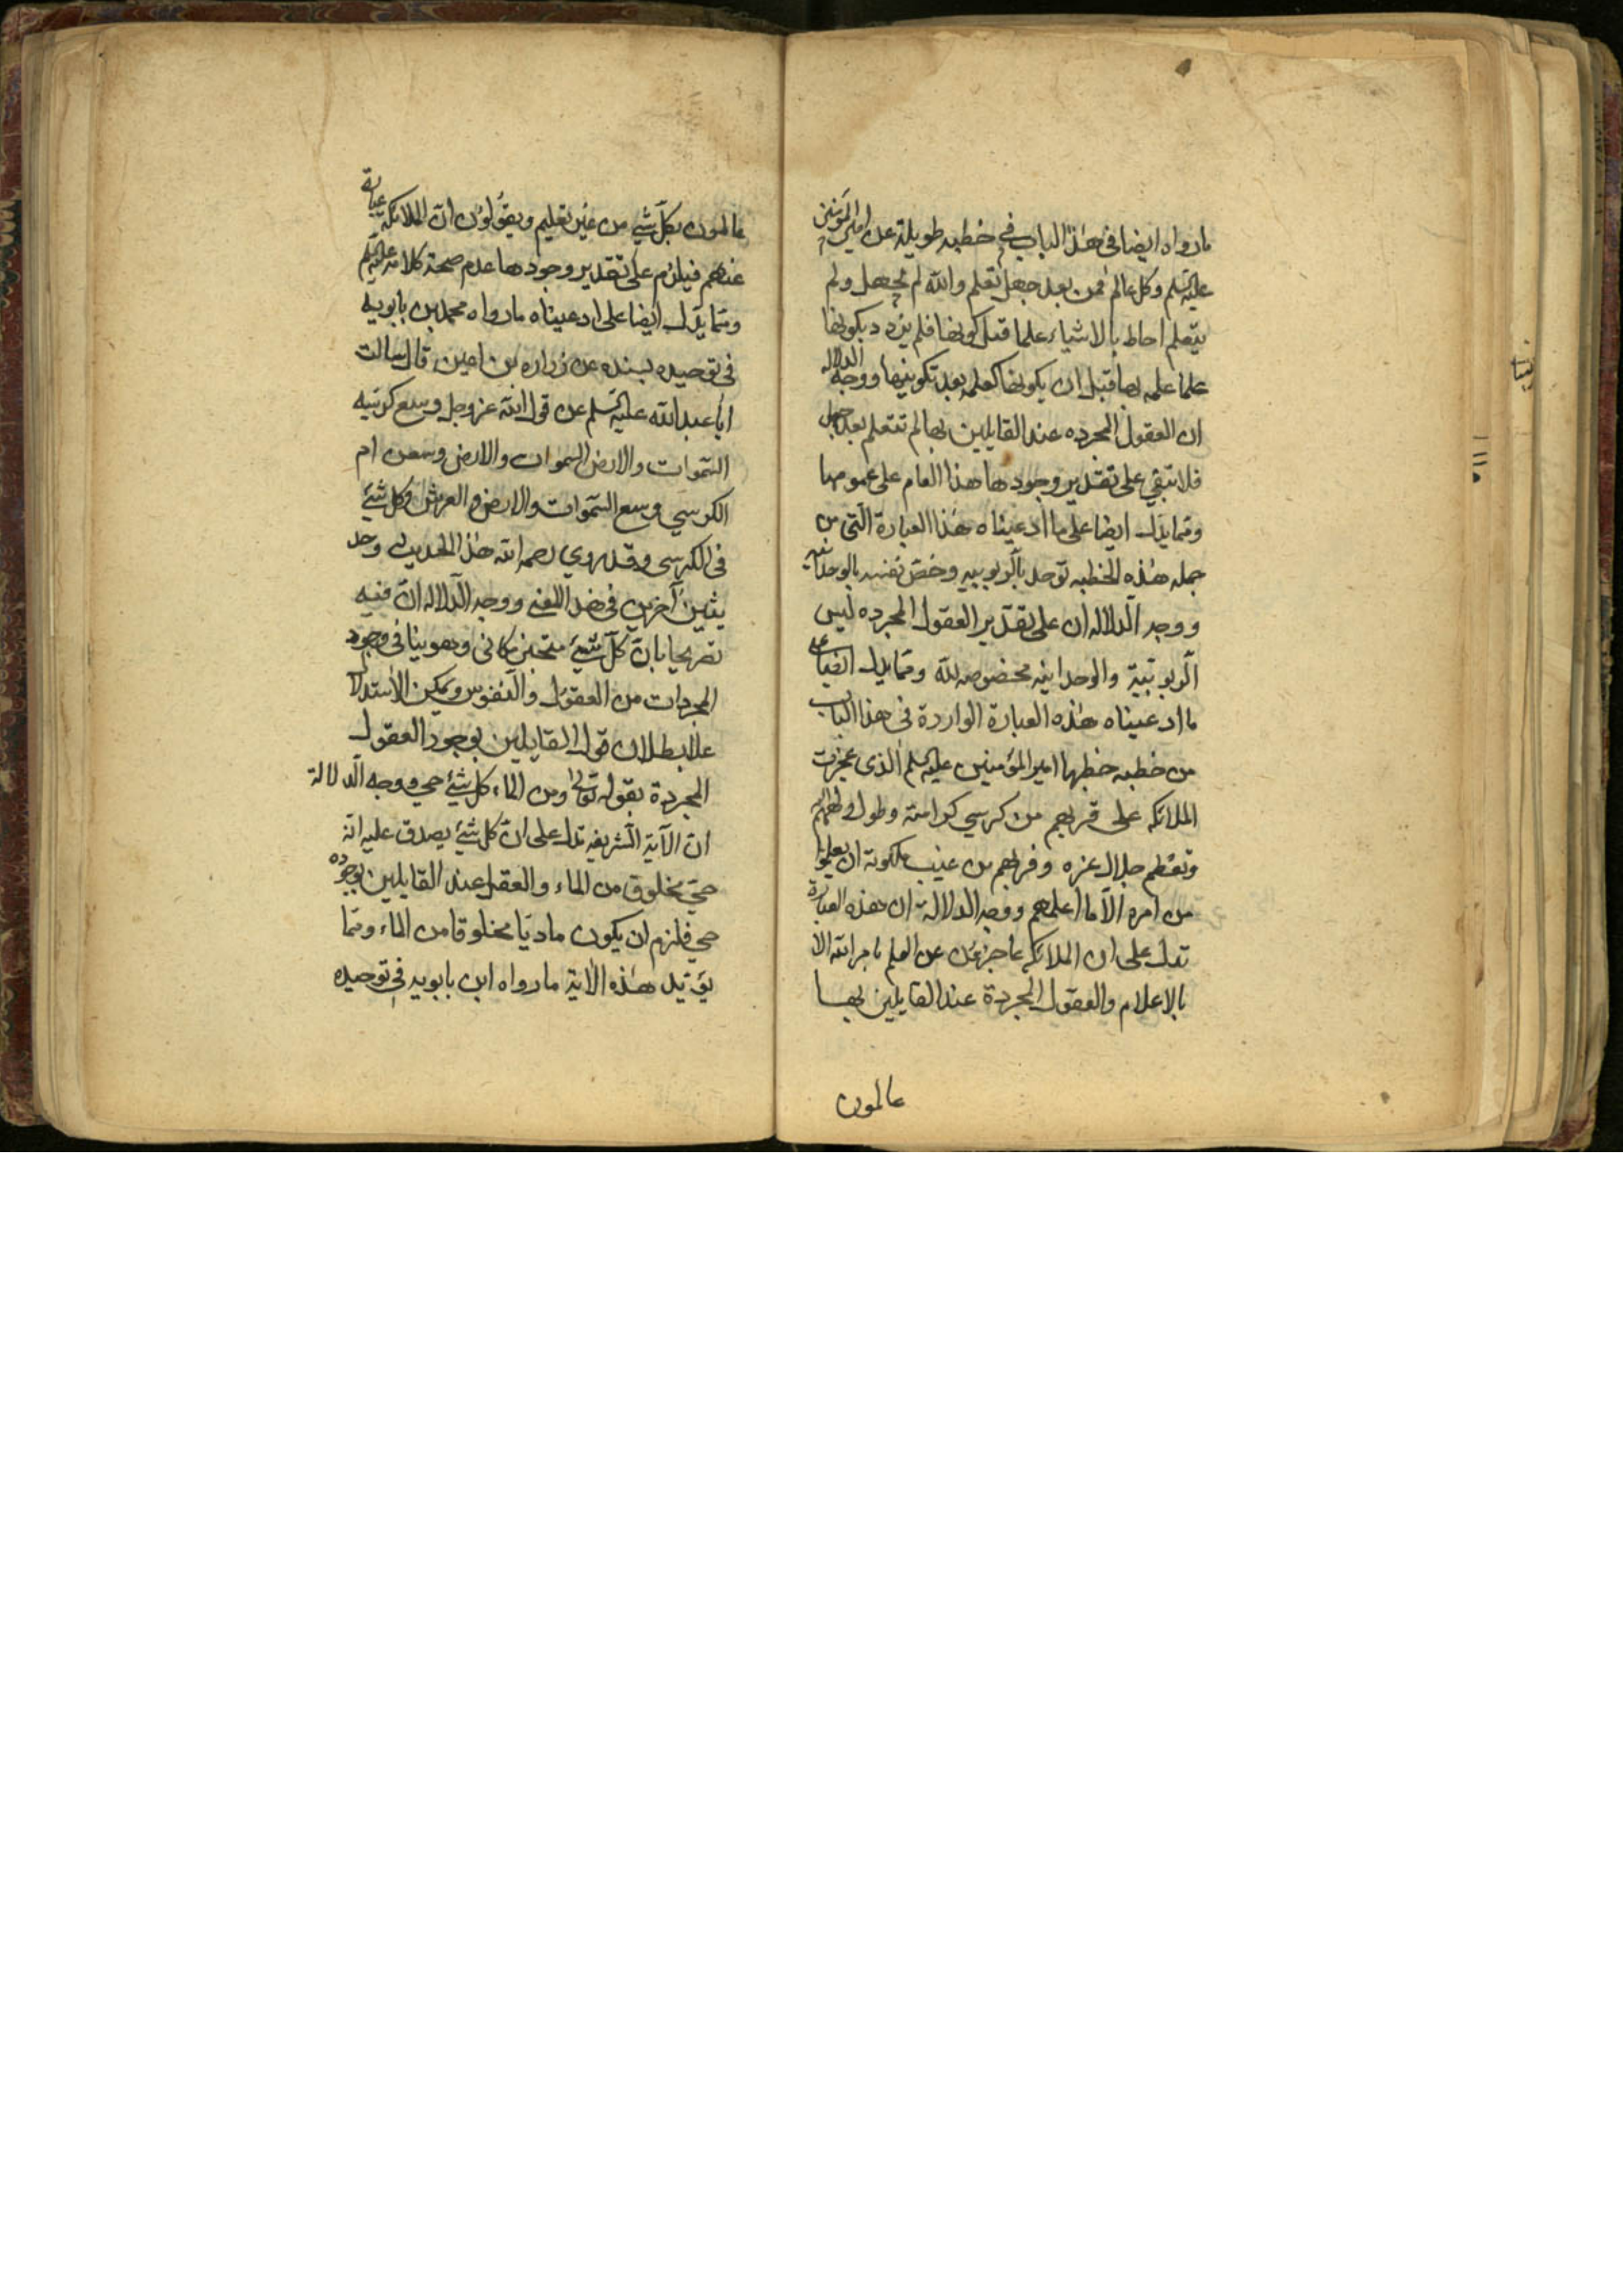 ما رواه ايضا في هذا الباب في خطبه طويلة عن امير المؤمنين
عليه السلم وكل عالم فمن بعد جهل تعلم والله لم يجهل ولم
يتعلم احاط بالاشياء علما قبل كونها فلم يزدد بكونها
علما علمه بها قبل ان يكونها كعلمه بعد تكوينها ووجه الدلاله
ان العقول المجرده عند القايلين بها لم تتعلم بعد جهل
فلا تبقي على تقدير وجودها هذا العام على عمومها
ومما يدل ايضا على ما ادعيناه هذا العبارة التي من
جمله هذه الخطبه توحد بالربوبيه وخص نفسه بالوحدانيه
ووجه الدلاله ان على تقدير العقول المجرده ليس
الربوبية والوحدانيه مخصوصه لله ومما يدل ايضا على
ما ادعيناه هذه العبارة الواردة في هذا الباب
من خطبه خطبها امير المؤمنين عليه السلم الذي عجزت
الملائكه على قربهم من كرسي كرامته وطول ولههم اليه
وتعظيم جلال عزه وقربهم من غيب ملكوته ان يعلموا
من امره الا ما اعلمهم ووجه الدلالة ان هذه العبارة
تدل على ان الملائكه عاجزون عن العلم بامر الله الا
بالاعلام والعقول المجردة عند القايلين بها
عالمون
عالمون بكل شئ من غير تعليم ويقولون ان الملائكه عبارة
عنهم فيلزم على تقدير وجودها عدم صحة كلامه عليه السلم
ومما يدل ايضا على ادعيناه ما رواه محمد بن بابويه
في توحيده بسنده عن زراره بن اعين قال سالت
ابا عبد الله عليه السلم عن قول الله عز وجل وسع كرسيه
السموات والارض السموات والارض وسعن ام
الكرسي وسع السموات والارض والعرش وكل شئ
في الكرسي وقد روي رحمه الله هذا الحديث وحد
يثين آخرين في هذا المعني ووجه الدلاله ان فيه
تصريحا بان كل شئ متحيز مكاني وهو ينافي وجود
المجردات من العقول والنفوس ويمكن الاستدلال
علا بطلان قول القايلين بوجود العقول
المجردة بقوله تعالى ومن الماء كل شئ حي ووجه الدلالة
ان الآية الشريفه تدل على ان كل شئ يصدق عليه انه
حي مخلوق من الماء والعقل عند القايلين بوجوده
حي فلزم ان يكون ماديا مخلوقا من الماء ومما
يؤيد هذه الآية ما رواه ابن بابويه في توحيده